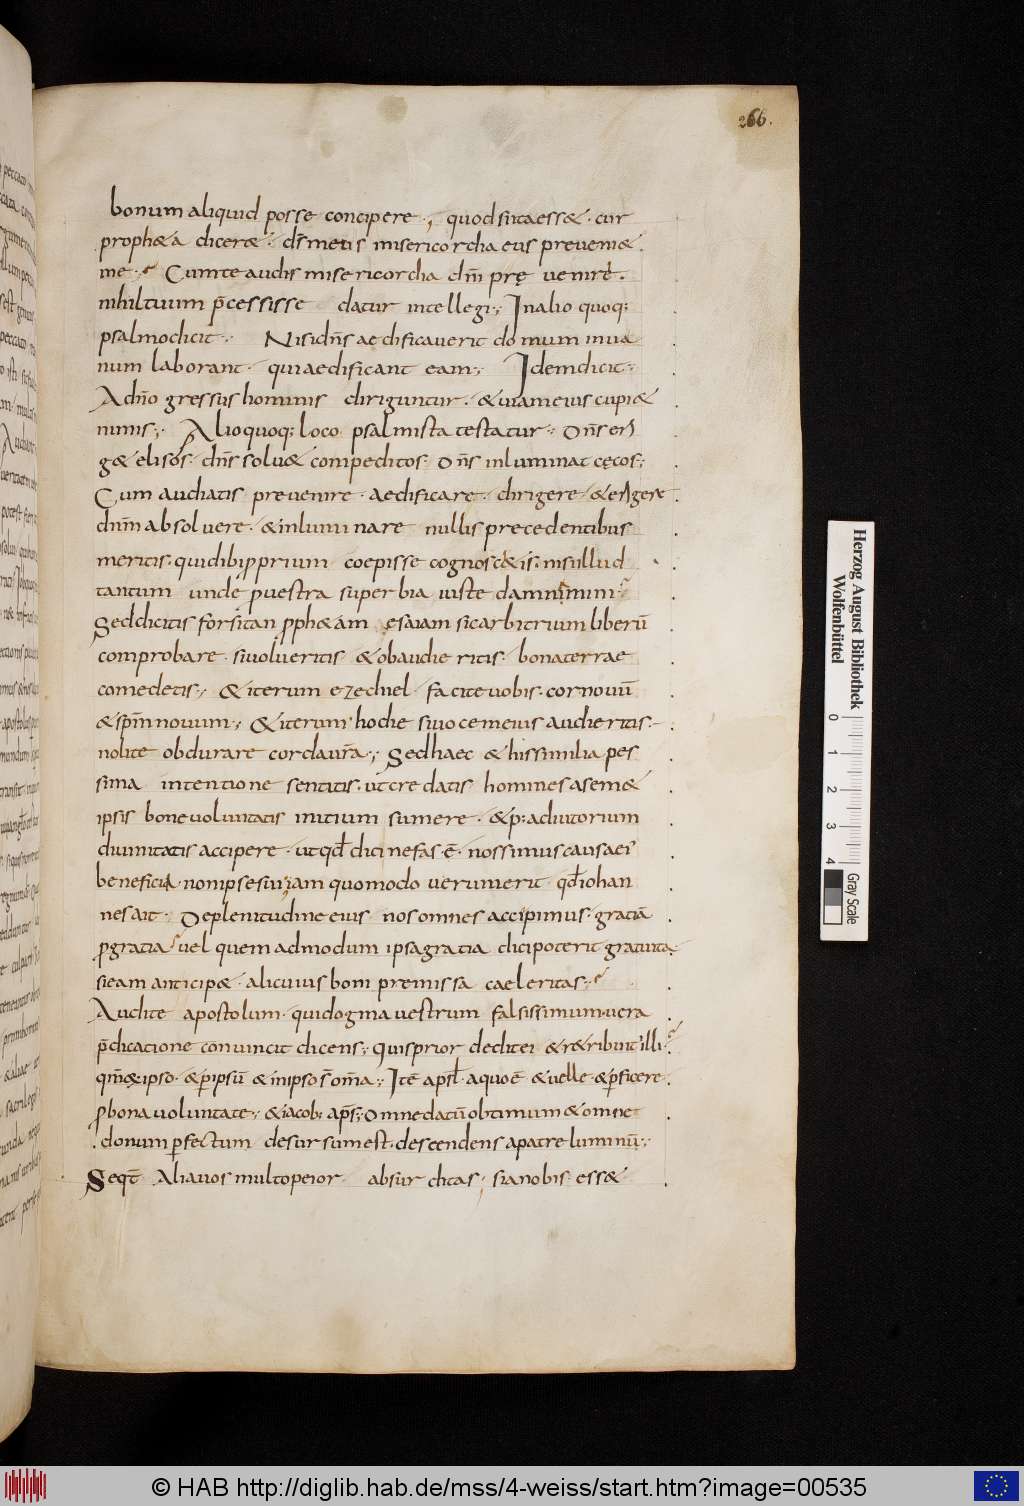 266.
bonum aliquid posse concipere ., quod si ita essæ · cur
prophæa diceræ · ds̄ meus misericordia eius preveniæ
me · Cum te audis misericordia dn̄i pręvenire .
nihil tuum p̄cessisse datur intellegi ; In alio quoq;
psalmo dicit · Nisi dn̄s aedificaverit domum in va
num laborant · qui aedificant eam ; Idem dicit ·
A dn̄o gressus hominis diriguntur . & viam eius cupiæ
nimis ; Alio quoq; loco psalmista testatur · Dn̄s eri
gæ elisos · dn̄s solvæ compeditos · Dn̄s inluminat cęcos ;
Cum audiatis prevenire · aedificare · dirigere · & erigere .
dn̄m absolvere · & inluminare nullis precedentibus
meritis · quid ibi p̱prium coepisse cognoscæis · nisi illud
tantum unde p̱ vestra superbia iuste damnimini
Sed dicitis forsitan p̱phæam esaiam sic arbitrium liberū
comprobare · si volveritis & obaudieritis · bona terrae
comedetis · & iterum ezechiel · facite vobis · cor novū
& sp̄m novum ; & iterum hodie si vocem eius audieritis ·
nolite obdurare corda vr̄a ; Sed haec & his similia pes
sima intentione sentitis · ut credatis homines a semæ
ipsis bone voluntatis initium sumere · & p: adiutorium
divinitatis accipere · ut qđ dici nefas ē · nos simus causa ei
beneficia · non ipse sui, iam quomodo verum erit qđ iohan
nes ait · De plenitudine eius nos omnes accipimus · gratiā
p̱ gratia vel quem admodum ipsa gratia dici poterit gratuita
si eam anticipæ · alicuius boni premissa caeleritas ·
Audite apostolum · qui dogma vestrum falsissimum · vera
p̄dicatione convincit dicens ; Quis prior dedit ei & rætribuit illi ·
qm̄ & ipso · & p̱ ipsū & in ipso s̄ om̄a ; Itē apsl̄ · a quo ē & velle · & p̱ficere .
p̱ bona voluntate ; & iacob; aps̄; Omne datū obtimum & omne
donum p̱fectum desursum est · descendens a patre luminū ;
Seqt̄ Alia vos multo peior absurditas · si a nobis essæ
Herzog August Bibliothek
Wolfenbüttel
0 1 2 3 4
Gray Scale
© HAB http://diglib.hab.de/mss/4-weiss/start.htm?image=00535